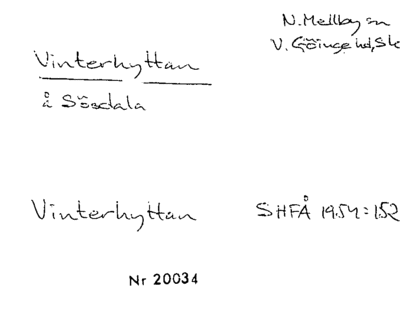 N. Mellby sn
V. Göinge hd, Sk
Vinterhyttan
å Sösdala
Vinterhyttan SHFÅ 1954:152
Nr 20034